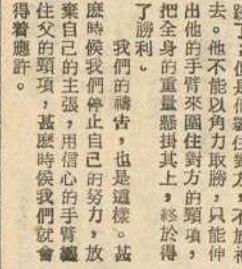 去。他不能以角力取勝，只能伸
出他的手臂來圍住對方的頸項，
把全身的重量懸掛其上，終於得
了勝利。
我們的禱告，也是這樣。甚
麼時候我們停止自己的努力，放
棄自己的主張，用信心的手臂纏
住父的頸項，甚麼時候我們就會
得着應許。